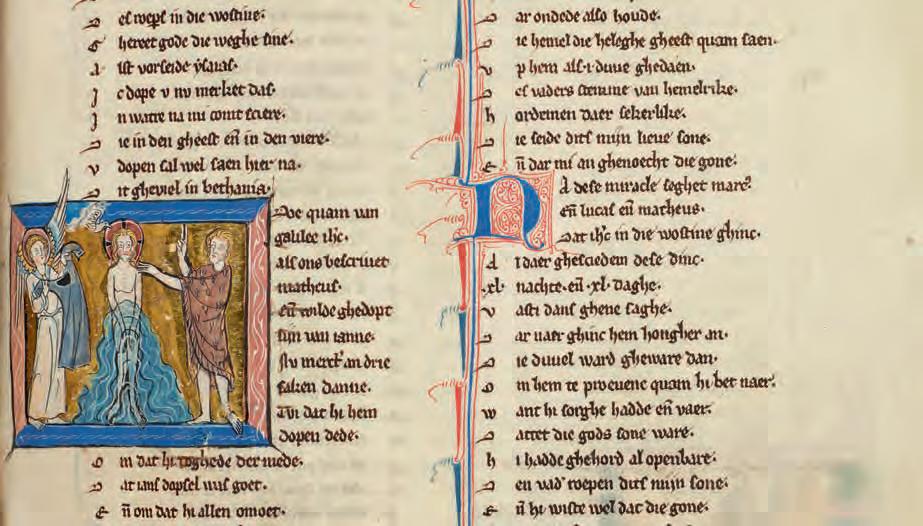 D es roepes in die wostine·
E ffenet gode die weghe sine·
A lst vorseide ysaias·
J c dope v nv merket das·
J n watre na mi comt sciere·
D ie in den gheest en̄ in den viere·
V dopen sal wel saen hier na·
D it gheviel in bethania·
Doe quam van
galilee ihc̄·
Als ons bescrivet
matheus·
En̄ wilde ghedopt
sijn van ianne·
Nv merct an drie
saken danne·
Twi dat hi hem
dopen dede·
O m dat hi toghede der mede·
D at ians dopsel was goet·
E n̄ om dat hi allen omoet·
D ar ondede also houde·
D ie hemel die heleghe gheest quam saen·
V p hem als·i·duue ghedaen·
D es vaders stemme van hemelrike·
H ordemen daer sekerlike·
D ie seide dits mijn lieue sone·
E n̄ dar mi an ghenoecht die gone·
Na dese miracle seghet marc⁹
En̄ lucas en̄ matheus·
Dat ihc̄ in die wostine ghinc·
A l daer ghesciedem dese dinc·
·xl· nachte·en̄·xl·daghe·
V asti dans ghene saghe·
D ar naer ghinc hem hongher an·
D ie duuel ward gheware dan·
O m hem te proeuene quam hi bet naer·
W ant hi sorghe hadde en̄ vaer·
D attet die gods sone ware·
H i hadde ghehord al openbare·
D en vad' roepen dits mijn sone·
E n̄ hi wiste wel dat die gone·